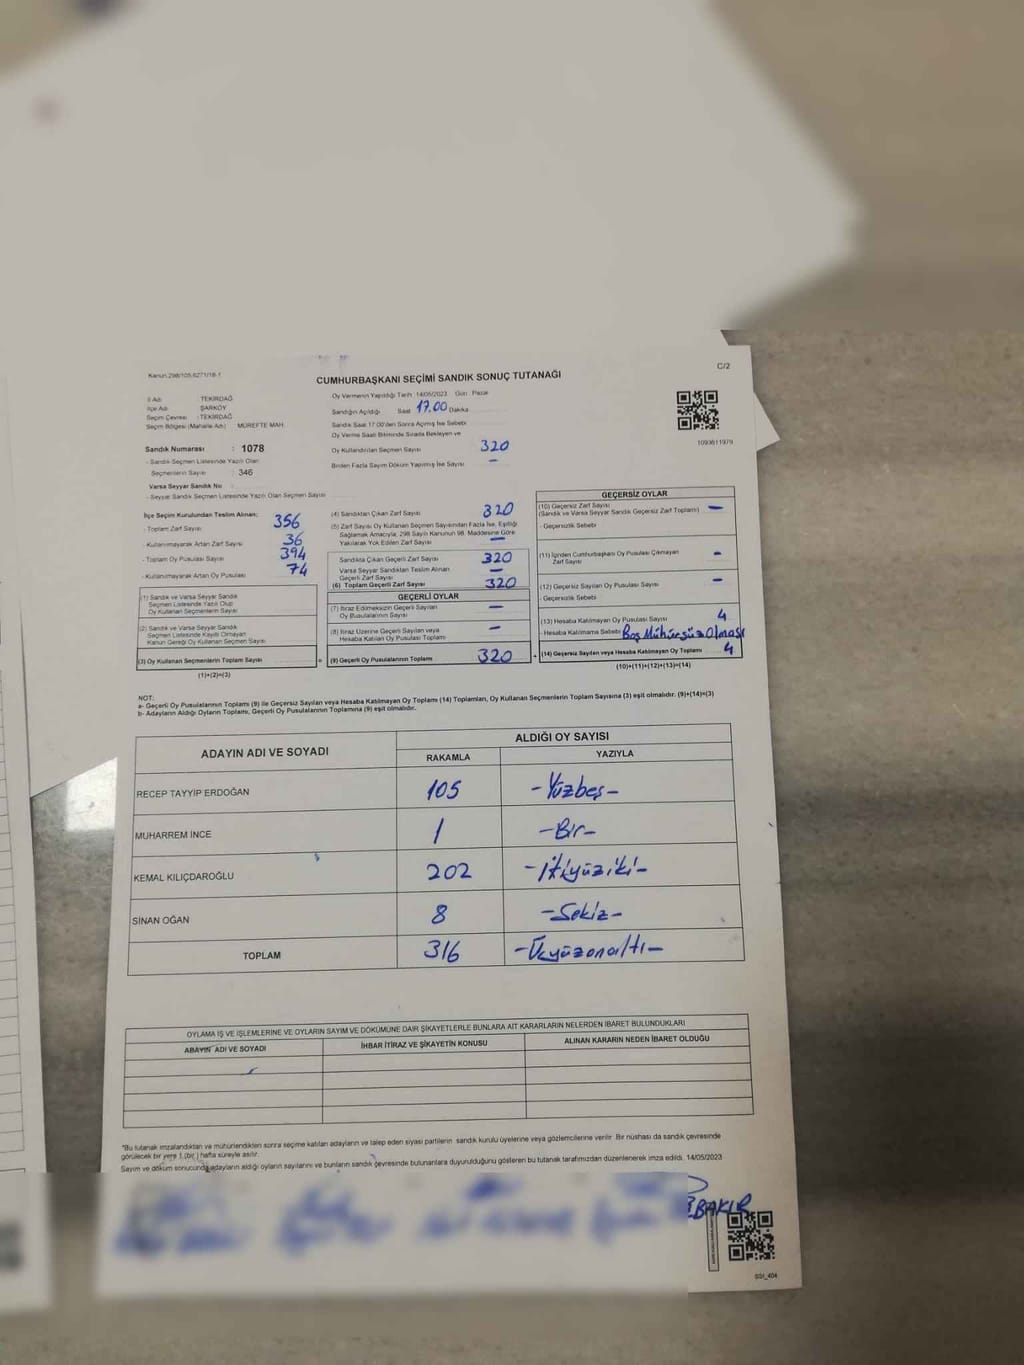 Kanun 298/105,6271/18-1
C/2
CUMHURBAŞKANI SEÇİMİ SANDIK SONUÇ TUTANAĞI
İl Adı : TEKİRDAĞ
İlçe Adı : ŞARKÖY
Seçim Çevresi : TEKİRDAĞ
Seçim Bölgesi (Mahalle Adı) : MÜREFTE MAH.
Sandık Numarası : 1078
- Sandık Seçmen Listesinde Yazılı Olan
Seçmenlerin Sayısı : 346
Varsa Seyyar Sandık No :
- Seyyar Sandık Seçmen Listesinde Yazılı Olan Seçmen Sayısı
Oy Vermenin Yapıldığı Tarih 14/05/2023 Gün Pazar
Sandığın Açıldığı Saat 17.00 Dakika
Sandık Saat 17.00'den Sonra Açılmış İse Sebebi
Oy Verme Saati Bitiminde Sırada Bekleyen ve
Oy Kullandırılan Seçmen Sayısı 320
Birden Fazla Sayım Döküm Yapılmış İse Sayısı –
1093611979
İlçe Seçim Kurulundan Teslim Alınan;
- Toplam Zarf Sayısı 356
- Kullanılmayarak Artan Zarf Sayısı 36
- Toplam Oy Pusulası Sayısı 394
- Kullanılmayarak Artan Oy Pusulası 74
(1) Sandık ve Varsa Seyyar Sandık
Seçmen Listesinde Yazılı Olup
Oy Kullanan Seçmenlerin Sayısı
(2) Sandık ve Varsa Seyyar Sandık
Seçmen Listesinde Kayıtlı Olmayan
Kanun Gereği Oy Kullanan Seçmen Sayısı
(3) Oy Kullanan Seçmenlerin Toplam Sayısı =
(1)+(2)=(3)
(4) Sandıktan Çıkan Zarf Sayısı 320
(5) Zarf Sayısı Oy Kullanan Seçmen Sayısından Fazla İse, Eşitliği
Sağlamak Amacıyla, 298 Sayılı Kanunun 98. Maddesine Göre
Yakılarak Yok Edilen Zarf Sayısı –
Sandıkta Çıkan Geçerli Zarf Sayısı 320
Varsa Seyyar Sandıktan Teslim Alınan
Geçerli Zarf Sayısı –
(6) Toplam Geçerli Zarf Sayısı 320
GEÇERLİ OYLAR
(7) İtiraz Edilmeksizin Geçerli Sayılan
Oy Pusulalarının Sayısı –
(8) İtiraz Üzerine Geçerli Sayılan veya
Hesaba Katılan Oy Pusulası Toplamı –
(9) Geçerli Oy Pusulalarının Toplamı 320 +
GEÇERSİZ OYLAR
(10) Geçersiz Zarf Sayısı
(Sandık ve Varsa Seyyar Sandık Geçersiz Zarf Toplamı) –
- Geçersizlik Sebebi
(11) İçinden Cumhurbaşkanı Oy Pusulası Çıkmayan
Zarf Sayısı –
(12) Geçersiz Sayılan Oy Pusulası Sayısı –
- Geçersizlik Sebebi
(13) Hesaba Katılmayan Oy Pusulası Sayısı 4
- Hesaba Katılmama Sebebi Boş Mühürsüz Olması
(14) Geçersiz Sayılan veya Hesaba Katılmayan Oy Toplamı 4
(10)+(11)+(12)+(13)=(14)
NOT:
a- Geçerli Oy Pusulalarının Toplamı (9) ile Geçersiz Sayılan veya Hesaba Katılmayan Oy Toplamı (14) Toplamları, Oy Kullanan Seçmenlerin Toplam Sayısına (3) eşit olmalıdır. (9)+(14)=(3)
b- Adayların Aldığı Oyların Toplamı, Geçerli Oy Pusulalarının Toplamına (9) eşit olmalıdır.
ADAYIN ADI VE SOYADI
ALDIĞI OY SAYISI
RAKAMLA YAZIYLA
RECEP TAYYİP ERDOĞAN 105 -Yüzbeş-
MUHARREM İNCE 1 -Bir-
KEMAL KILIÇDAROĞLU 202 -İkiyüziki-
SİNAN OĞAN 8 -Sekiz-
TOPLAM 316 -Üçyüzonaltı-
OYLAMA İŞ VE İŞLEMLERİNE VE OYLARIN SAYIM VE DÖKÜMÜNE DAİR ŞİKAYETLERLE BUNLARA AİT KARARLARIN NELERDEN İBARET BULUNDUKLARI
ADAYIN ADI VE SOYADI İHBAR İTİRAZ VE ŞİKAYETİN KONUSU ALINAN KARARIN NEDEN İBARET OLDUĞU
*Bu tutanak imzalandıktan ve mühürlendikten sonra seçime katılan adayların ve talep eden siyasi partilerin sandık kurulu üyelerine veya gözlemcilerine verilir. Bir nüshası da sandık çevresinde
görülecek bir yere 1 (bir) hafta süreyle asılır.
Sayım ve döküm sonucunda adayların aldığı oyların sayılarını ve bunların sandık çevresinde bulunanlara duyurulduğunu gösteren bu tutanak tarafımızdan düzenlenerek imza edildi. 14/05/2023
BAKIR
SSI_404